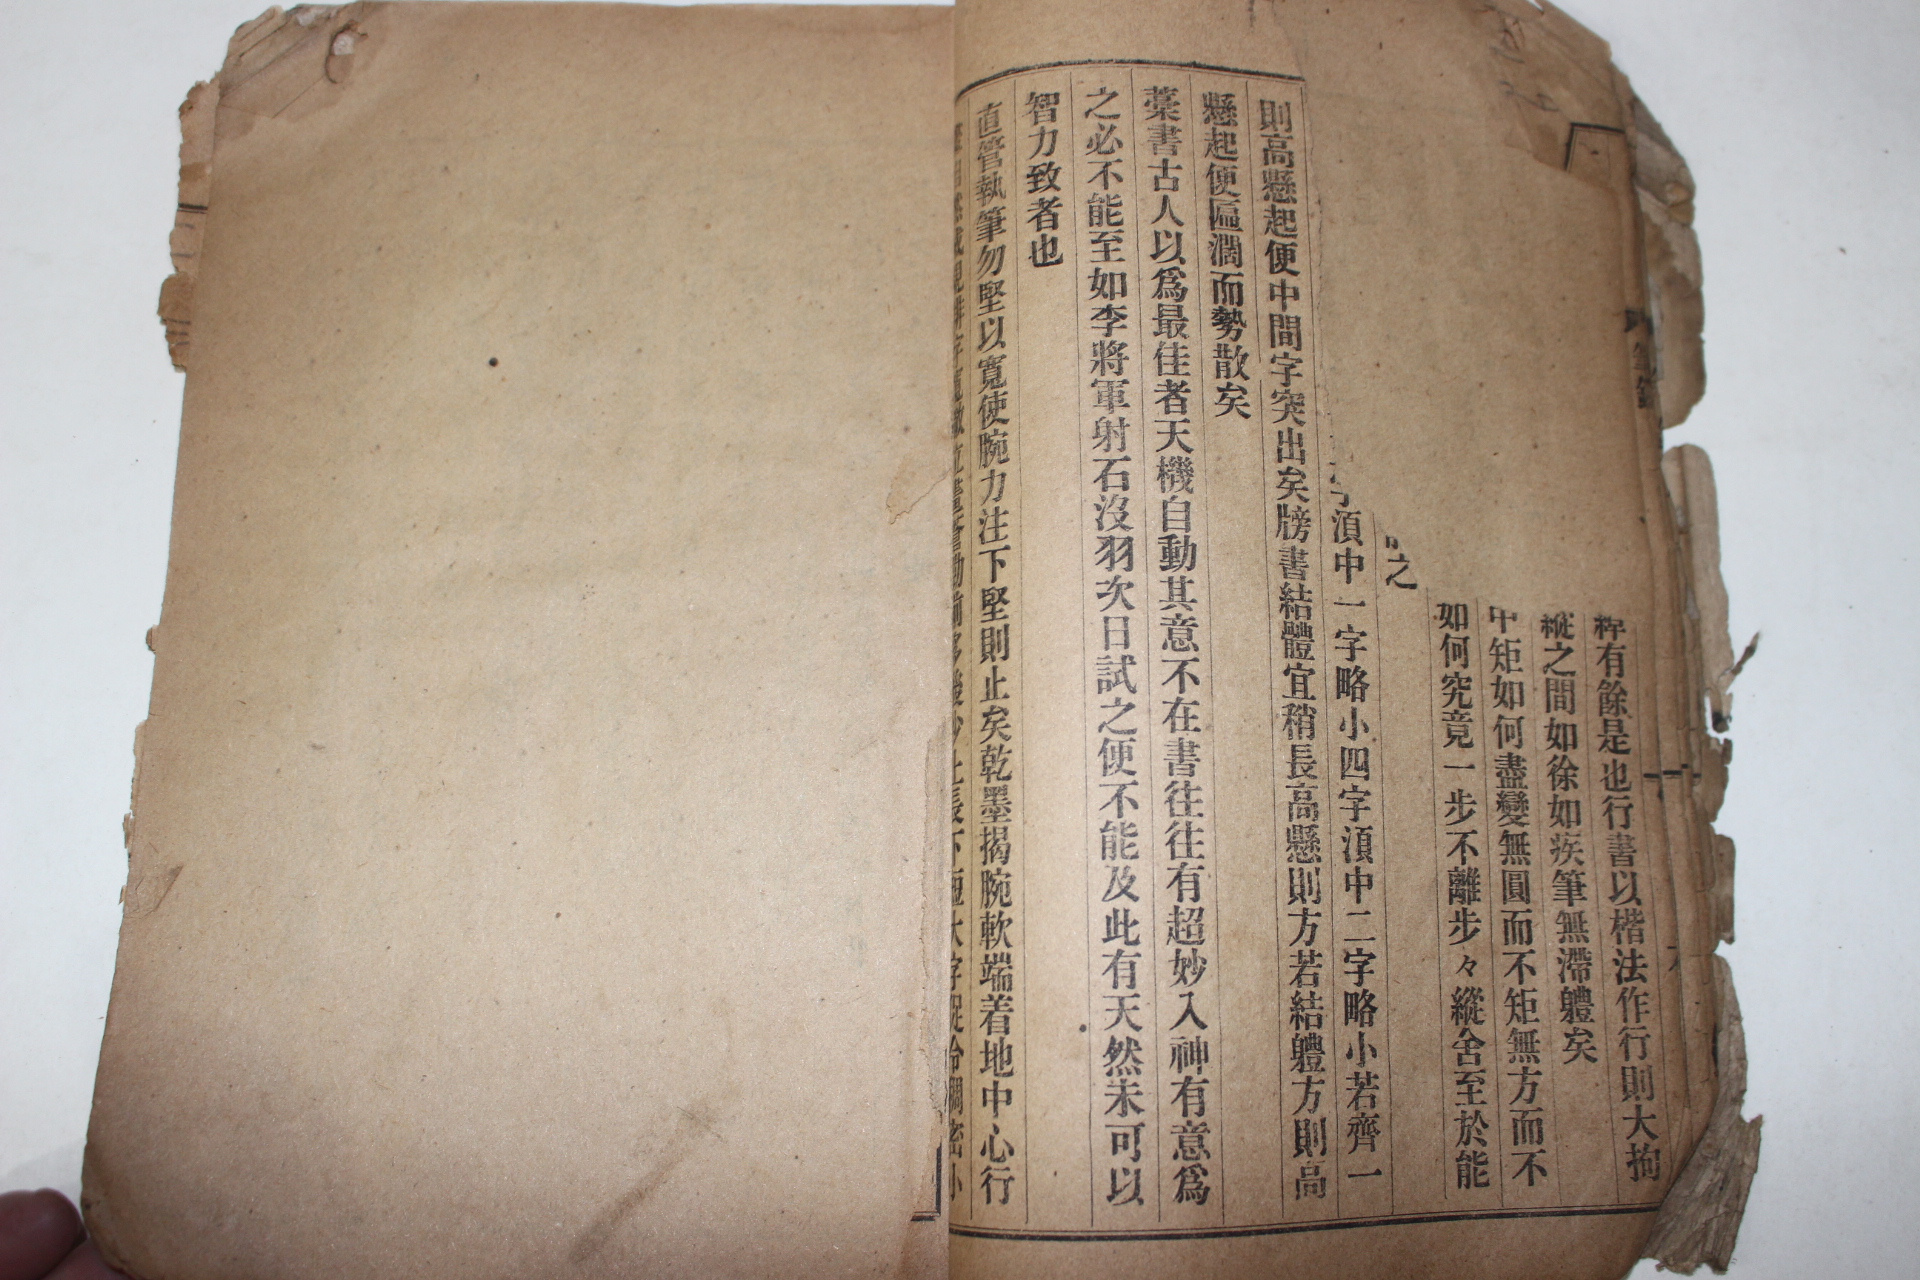 有餘是也行書以楷法作行則大拘
縱之間如徐如疾筆無滯軆矣
中矩如何盡變無圓而不矩無方而不
如何究竟一步不離步々縱舍至於能
之
須中一字略小四字須中二字略小若齊一
則高懸起便中間字突出矣牓書結體宜稍長高懸則方若結軆方則高
懸起便匾濶而勢散矣
藁書古人以爲最佳者天機自動其意不在書往往有超妙入神有意爲
之必不能至如李將軍射石沒羽次日試之便不能及此有天然未可以
智力致者也
直管執筆勿堅以寬使腕力注下堅則止矣乾墨揭腕軟端着地中心行